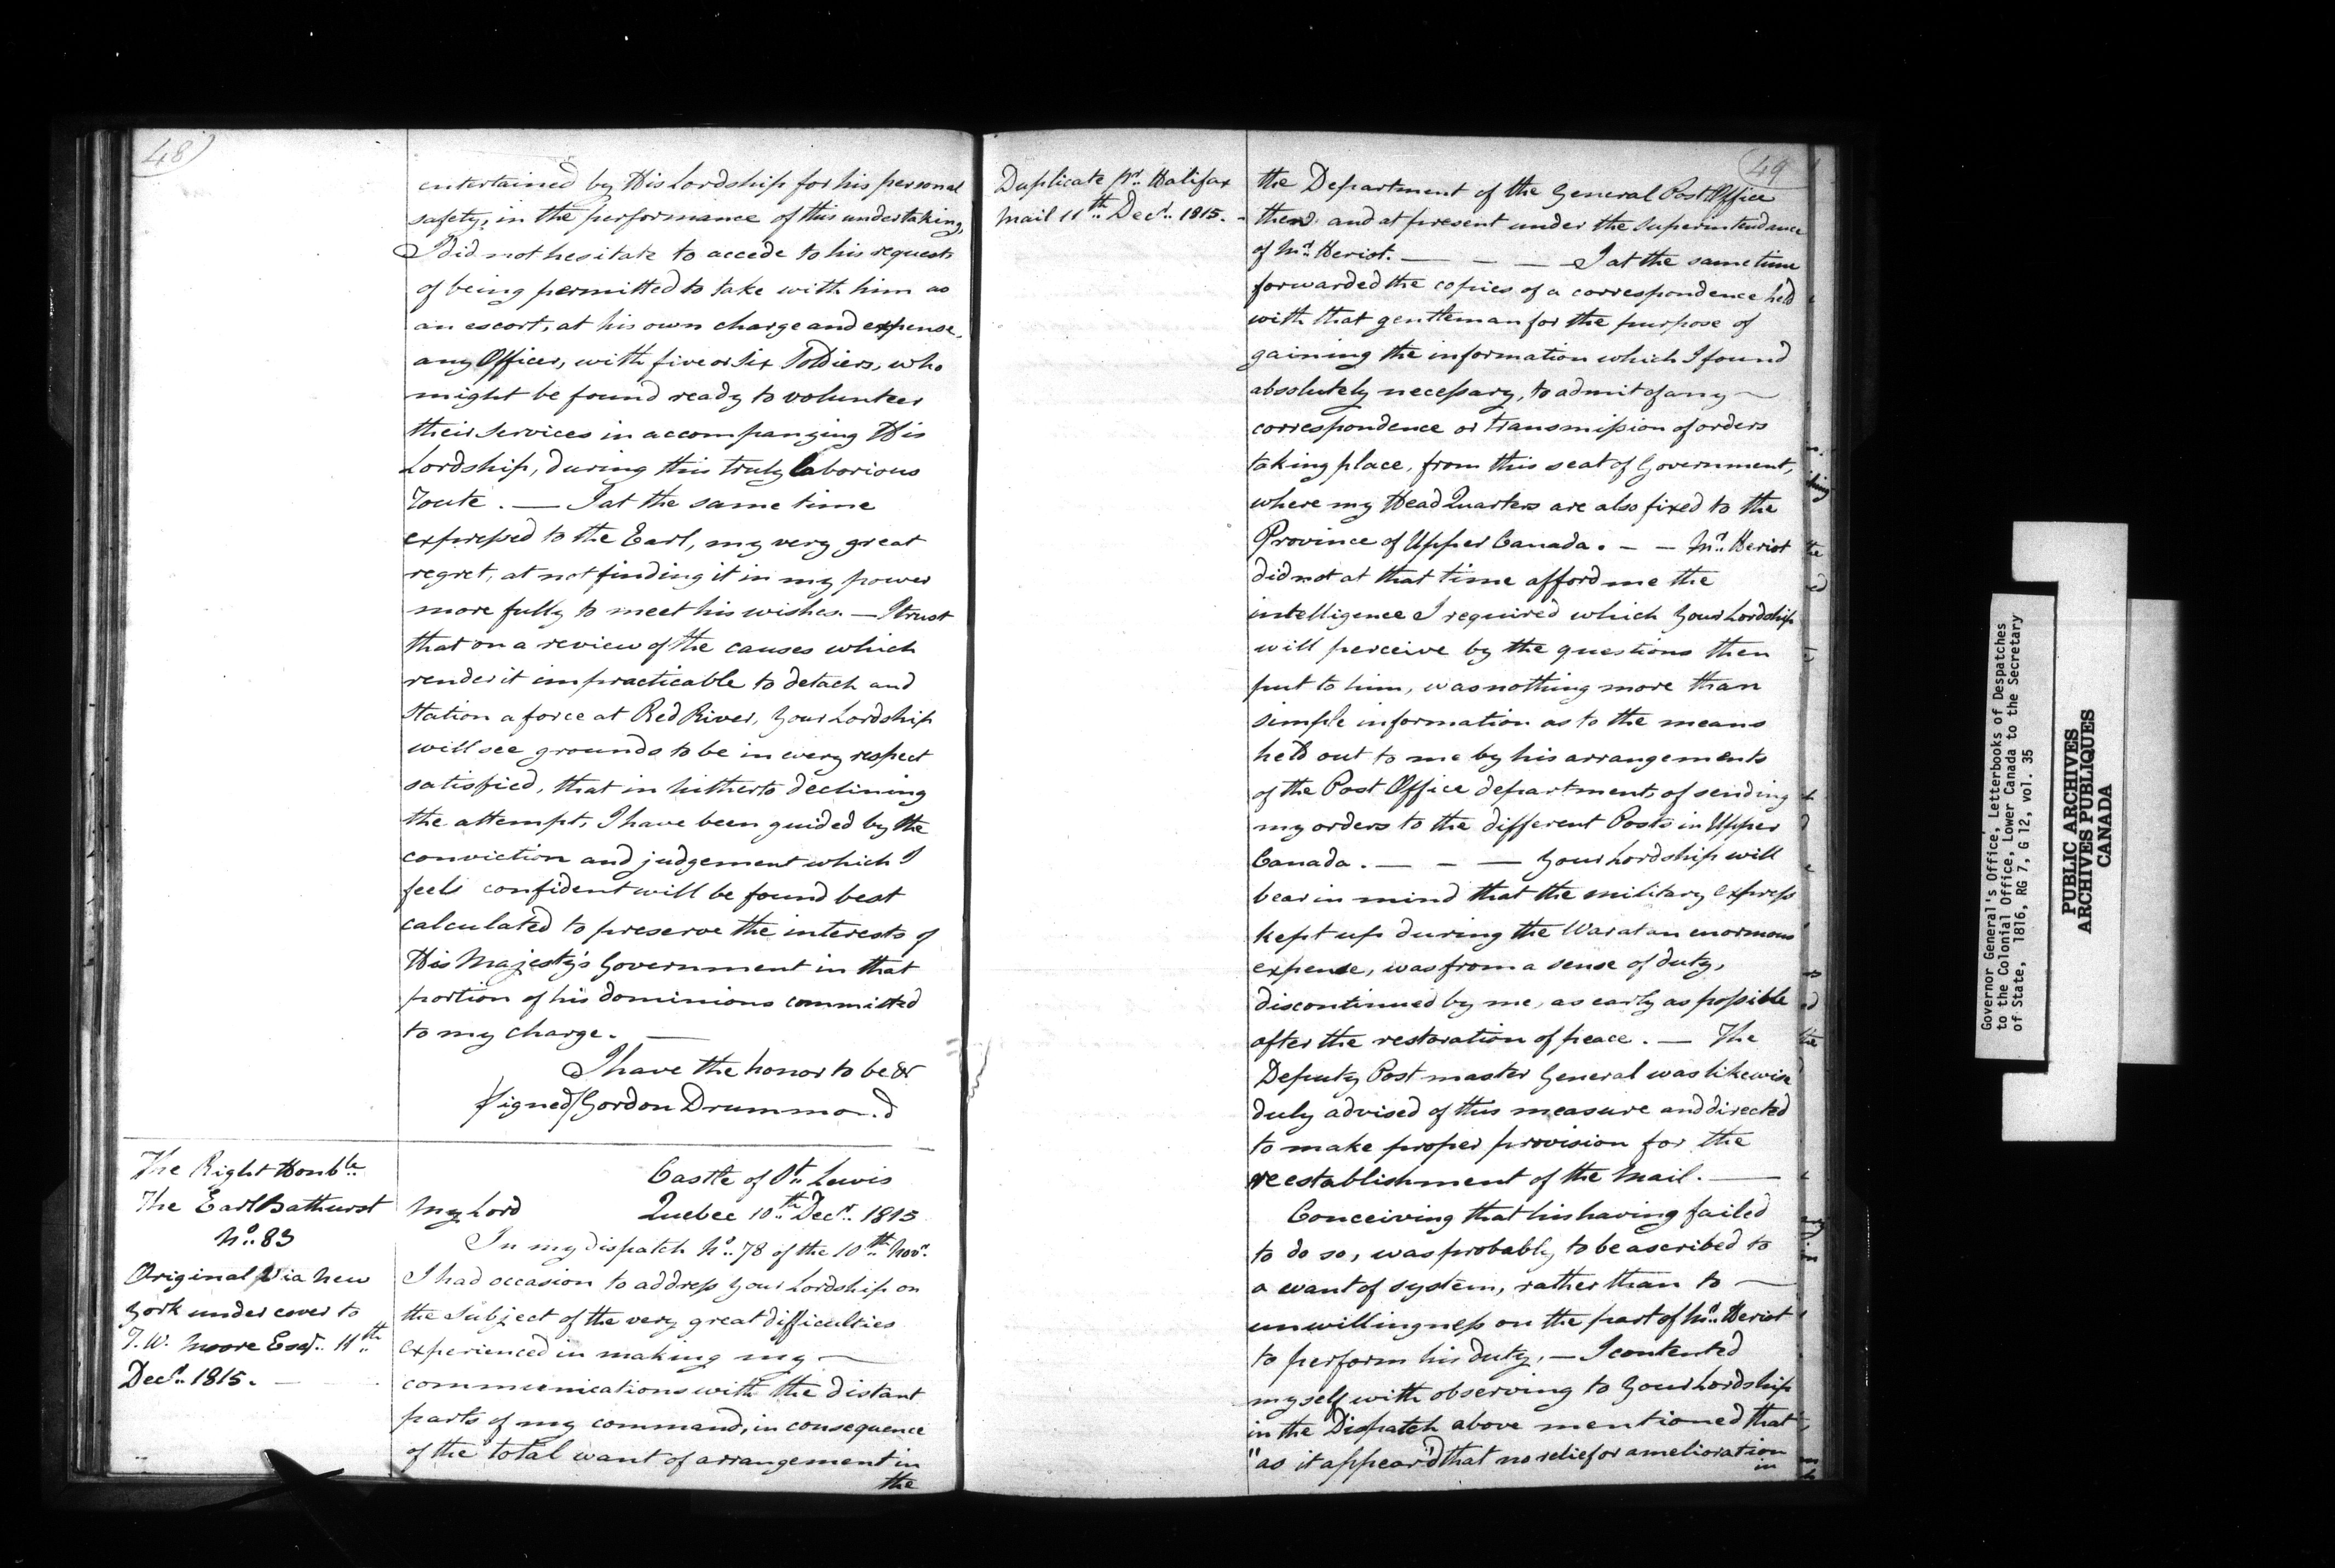 48)
entertained by His Lordship for his personal
safety, in the performance of this undertaking,
I did not hesitate to accede to his request
of being permitted to take with him as
an escort, at his own charge and expense,
any Officer, with five or Six Soldiers, who
might be found ready to volunteer
their services in accompanying His
Lordship, during this truly laborious
route. — I at the same time
expressed to the Earl, my very great
regret, at not finding it in my power
more fully to meet his wishes. — I trust
that on a review of the causes which
render it impracticable to detach and
Station a force at Red River, Your Lordship
will see grounds to be in every respect
satisfied, that in hitherto declining
the attempt, I have been guided by the
conviction and judgement which I
feels confident will be found best
calculated to preserve the interests of
His Majesty's Government in that
portion of his dominions committed
to my charge. —
I have the honor to be &c
/Signed/ Gordon Drummond
The Right Honble
The Earl Bathurst
No. 83
Original Via New
York under cover to
T. W. Moore Esqr. 11th
Decr. 1815. —
Castle of St. Lewis
My Lord Quebec 10th Decr. 1815
In my dispatch No. 78 of the 10th Novr.
I had occasion to address Your Lordship on
the Subject of the very great difficulties
experienced in making my —
communications with the distant
parts of my command, in consequence
of the total want of arrangement in
the
49
Duplicate pr. Halifax
Mail 11th Decr. 1815. -
the Department of the General Post Office
then and at present under the Superintendance
of Mr. Heriot. — — — I at the same time
forwarded the copies of a correspondence held
with that gentleman for the purpose of
gaining the information which I found
absolutely necessary, to admit of any —
correspondence or transmission of orders
taking place, from this seat of Government,
where my Head Quarters are also fixed to the
Province of Upper Canada. - - Mr. Heriot
did not at that time afford me the
intelligence I required which Your Lordship
will perceive by the questions then
put to him, was nothing more than
simple information as to the means
held out to me by his arrangements
of the Post Office department, of sending
my orders to the different Posts in Upper
Canada. — — — Your Lordship will
bear in mind that the military express
kept up during the War at an enormous
expense, was from a sense of duty,
discontinued by me, as early as possible
after the restoration of peace. — The
Deputy Post master General was likewise
duly advised of this measure and directed
to make proper provision for the
reestablishment of the Mail. —
Conceiving that his having failed
to do so, was probably to be ascribed to
a want of system, rather than to —
unwillingness on the part of Mr. Heriot
to perform his duty, — I contented
myself with observing to Your Lordship
in the Dispatch above mentioned that
"as it appear'd that no relief or amelioration
in
Governor General's Office, Letterbooks of Despatches
to the Colonial Office, Lower Canada to the Secretary
of State, 1816, RG 7, G 12, vol. 35
PUBLIC ARCHIVES
ARCHIVES PUBLIQUES
CANADA